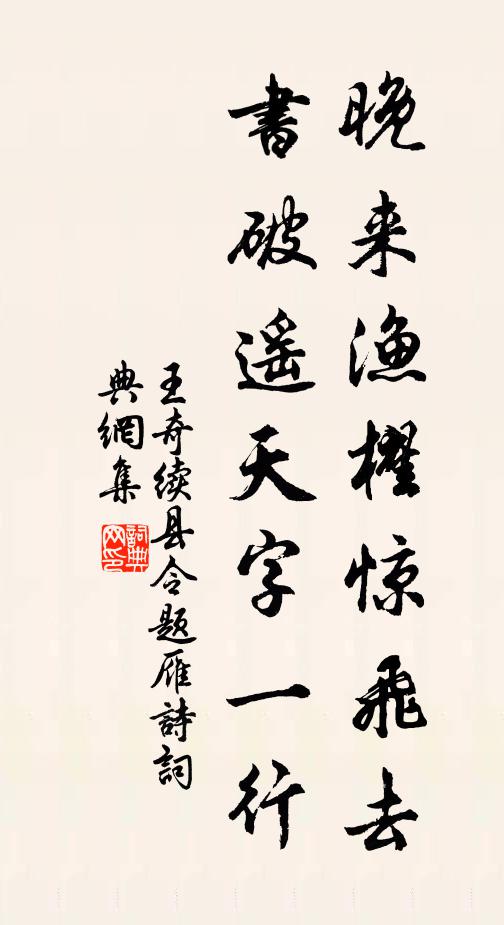 晚来渔櫂惊飛去
書破遥天字一行
王奇续县令题雁詩詞
典網集
詞典
网印